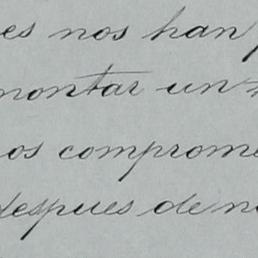 es nos han
montar un
os comprome
despues de n